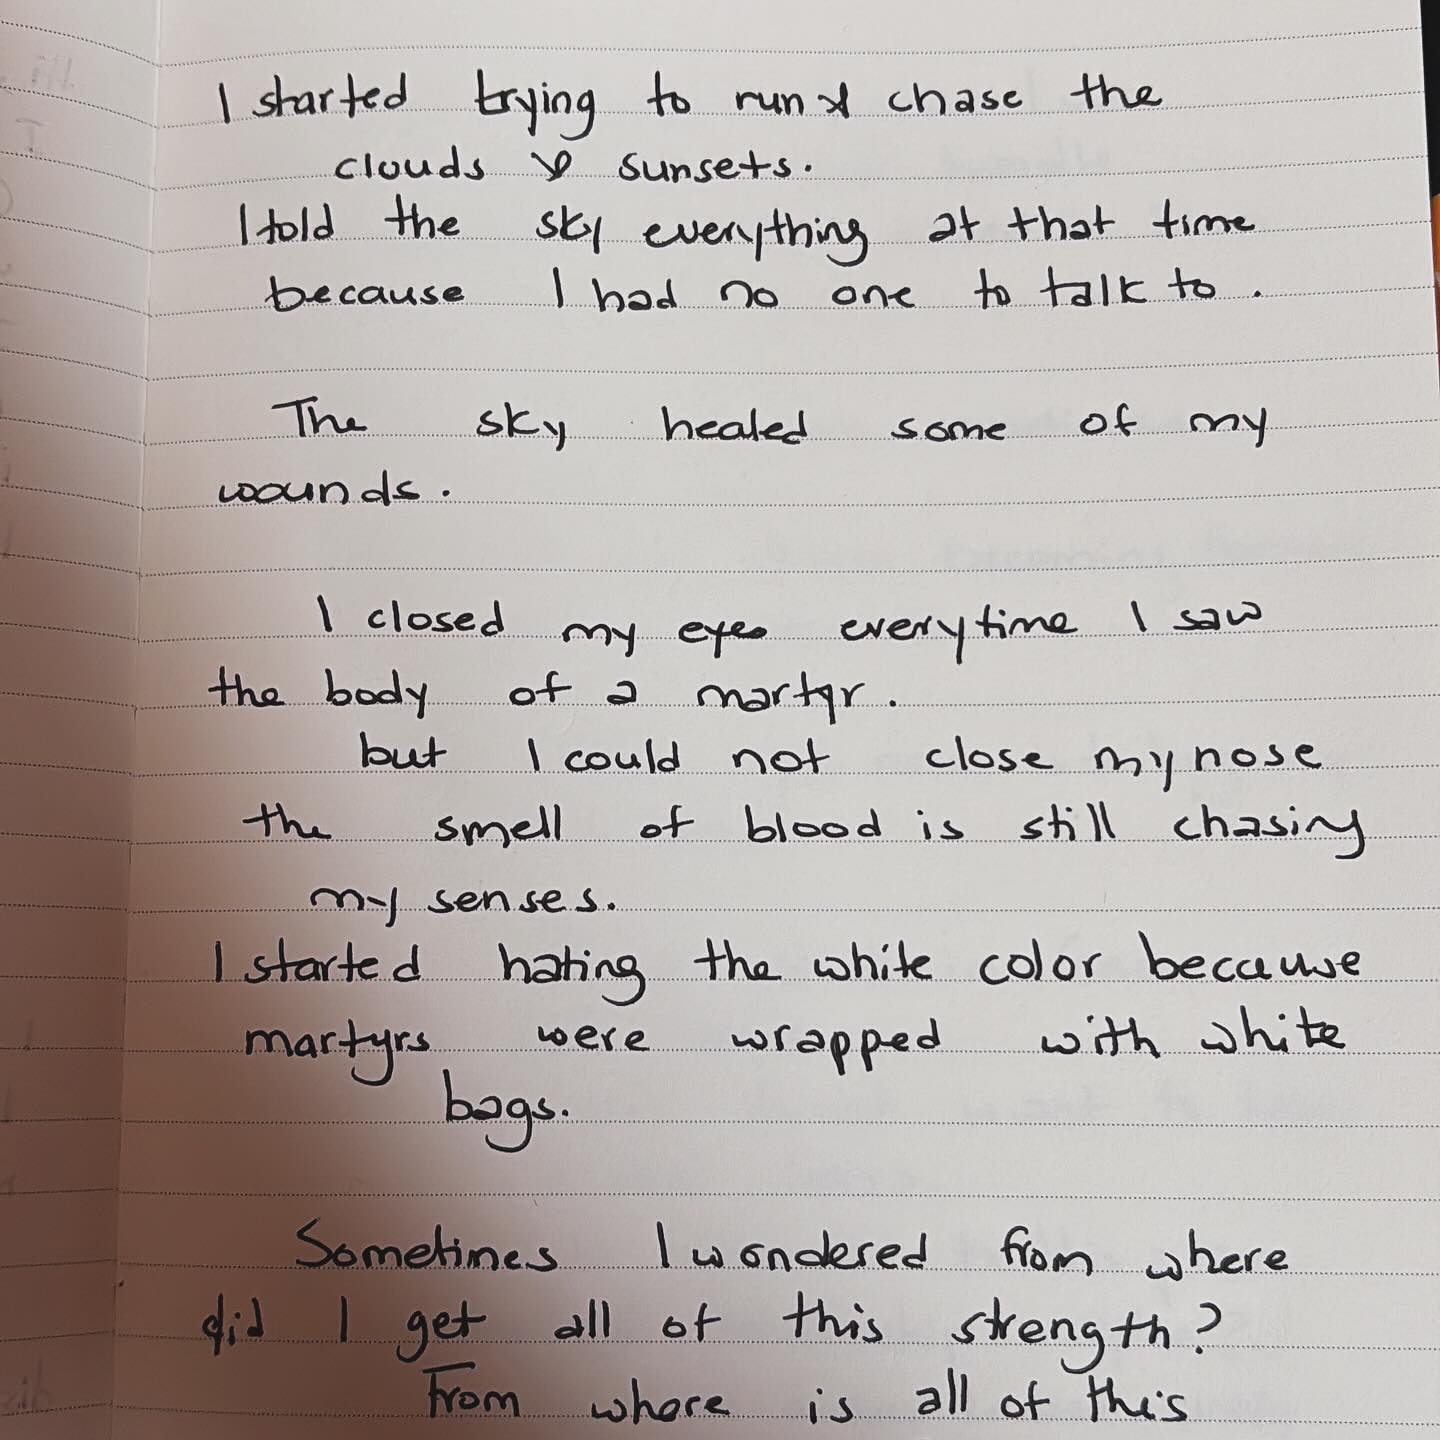 I started trying to run & chase the
clouds & sunsets.
I told the sky everything at that time
because I had no one to talk to.
The sky healed some of my
wounds.
I closed my eyes everytime I saw
the body of a martyr.
but I could not close my nose
the smell of blood is still chasing
my senses.
I started hating the white color because
martyrs were wrapped with white
bags.
Sometimes I wondered from where
did I get all of this strength?
From where is all of this